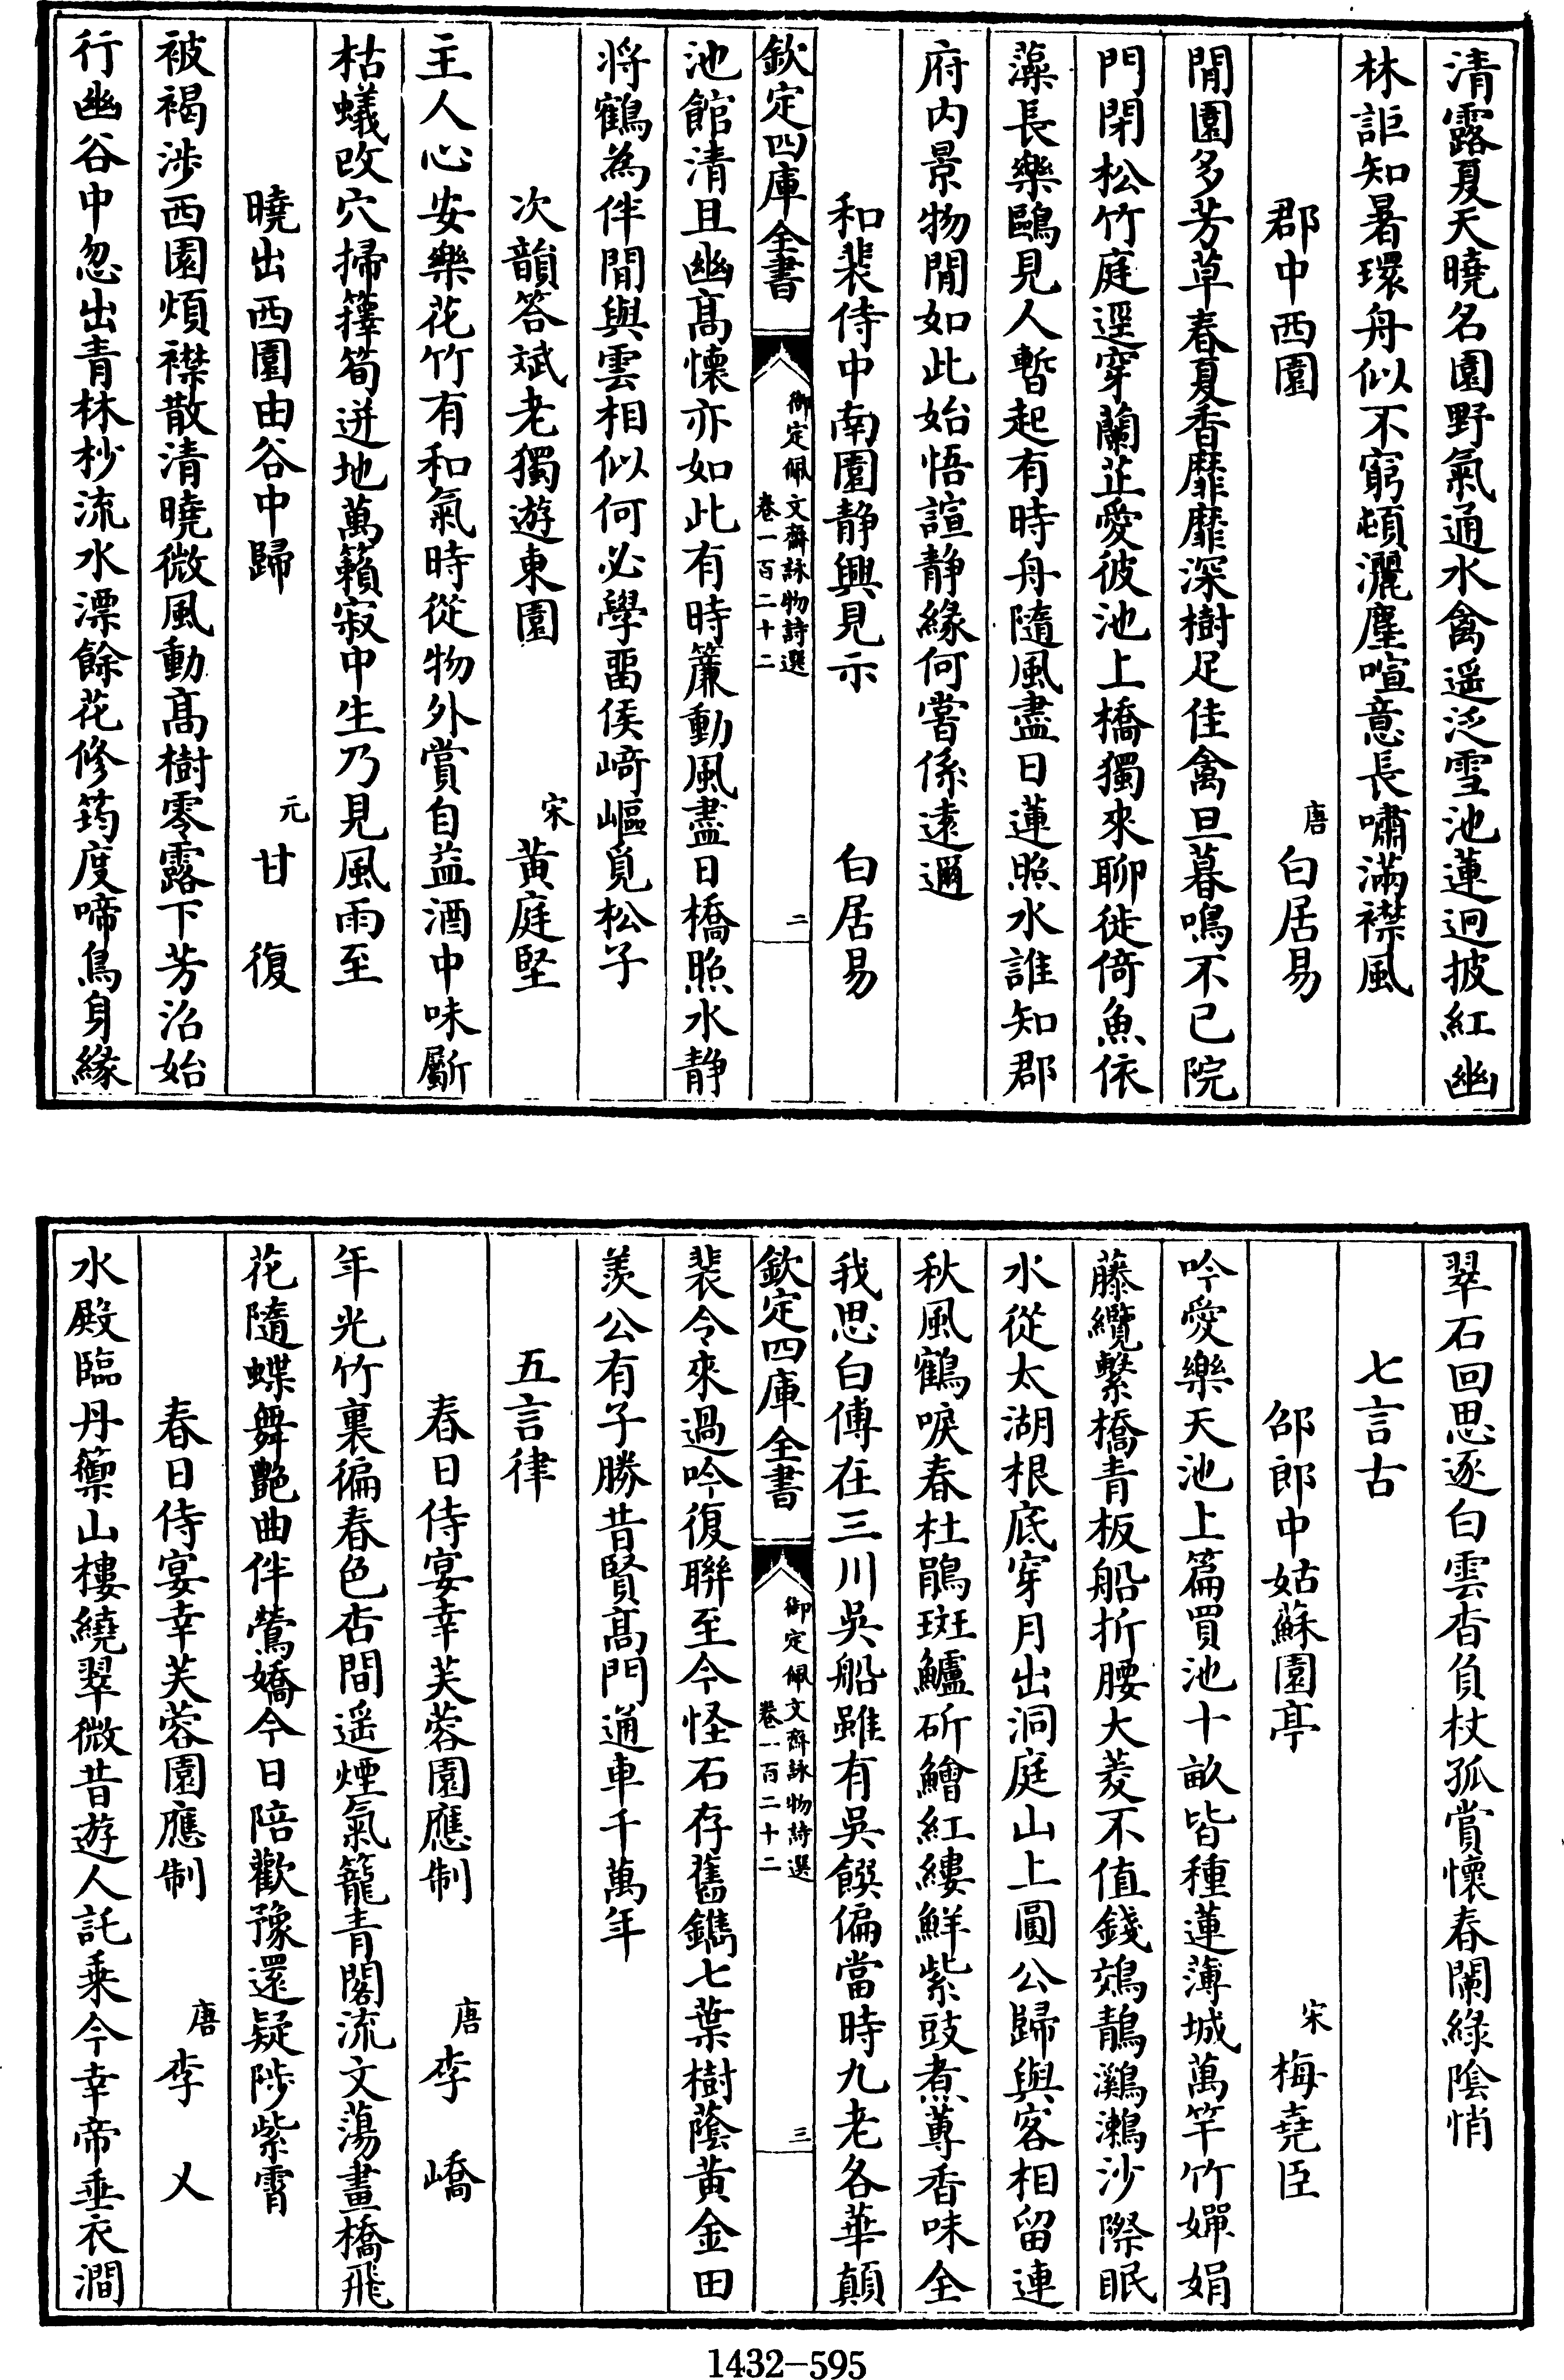 清露夏天曉名園野氣通水禽遥泛雪池蓮迥披紅幽
林詎知暑環舟似不窮頓灑塵喧意長嘯滿襟風
郡中西園　唐　白居易
閒園多芳草春夏香靡靡深樹足佳禽旦暮鳴不已院
門閉松竹庭逕穿蘭芷愛彼池上橋獨來聊徙倚魚依
藻長樂鷗見人暫起有時舟隨風盡日蓮照水誰知郡
府内景物閒如此始悟諠静緣何嘗係遠邇
和裴侍中南園静興見示　白居易
欽定四庫全書　御定佩文齋詠物詩選　卷一百二十二　二
池館清且幽髙懐亦如此有時簾動風盡日橋照水静
將鶴為伴閒與雲相似何必學畱侯崎嶇覓松子
次韻答斌老獨遊東園　宋　黄庭堅
主人心安樂花竹有和氣時從物外賞自益酒中味斸
枯蟻改穴掃籜筍迸地萬籟寂中生乃見風雨至
曉出西園由谷中歸　元　甘復
被褐涉西園煩襟散清曉微風動髙樹零露下芳沼始
行幽谷中忽出青林杪流水漂餘花修筠度啼鳥身緣
翠石回思逐白雲杳負杖孤賞懷春闌綠陰悄
七言古
邵郎中姑蘇園亭　宋　梅堯臣
吟愛樂天池上篇買池十畝皆種蓮薄城萬竿竹嬋娟
藤纜繫橋青板船折腰大菱不值錢鵁鶄鸂鷘沙際眠
水從太湖根底穿月出洞庭山上圓公歸與客相留連
秋風鶴唳春杜鵑斑鱸斫鱠紅縷鮮紫豉煮蓴香味全
我思白傅在三川吳船雖有吳饌偏當時九老各華顛
欽定四庫全書　御定佩文齋詠物詩選　卷一百二十二　三
裴令來過吟復聯至今怪石存舊鐫七葉樹蔭黄金田
羨公有子勝昔賢髙門通車千萬年
五言律
春日侍宴幸芙蓉園應制　唐　李嶠
年光竹裏徧春色杏間遥煙氣籠青閣流文蕩畫橋飛
花隨蝶舞艶曲伴鶯嬌今日陪歡豫還疑陟紫霄
春日侍宴幸芙蓉園應制　唐　李乂
水殿臨丹籞山樓繞翠微昔遊人託乗今幸帝垂衣澗
1432—595